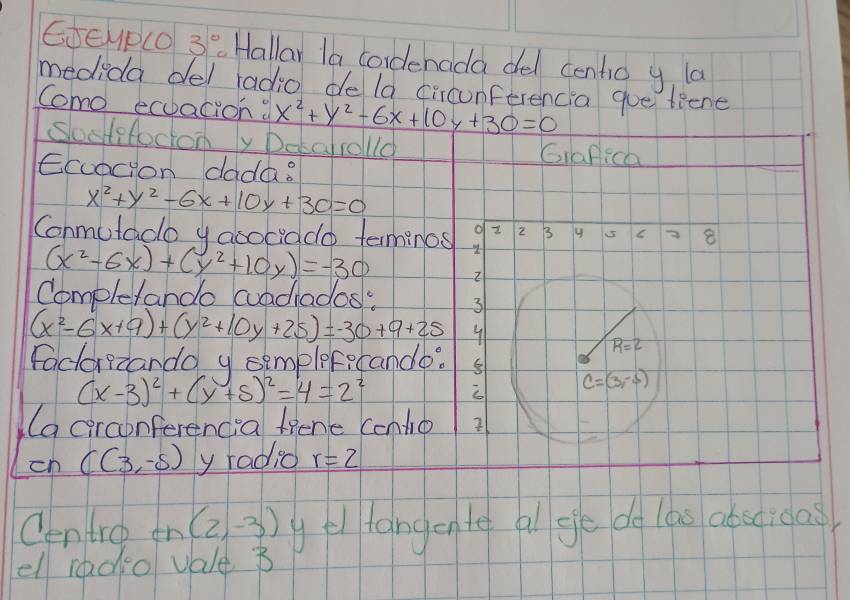 EJEMPLO 3°: Hallar la cordenada del centro y la
medida del radio de la circunferencia que tiene
Como ecuación: x² + y² - 6x + 10y + 30 = 0
Sustitocion y Desarrollo
Grafica
Ecuacion dada:
x² + y² - 6x + 10y + 30 = 0
Conmutado y asociado terminos
(x² - 6x) + (y² + 10y) = -30
Completando cuadrados:
(x² - 6x + 9) + (y² + 10y + 25) = -30 + 9 + 25
Factorizando y simplificando:
(x - 3)² + (y + 5)² = 4 = 2²
La circunferencia tiene centro
en C(3, -5) y radio r = 2
0 1 2 3 4 5 6 7 8
1
2
3
4
5
6
7
R=2
C=(3,-5)
Centro en (2, -3) y el tangente al eje de las abscidas,
el radio vale 3